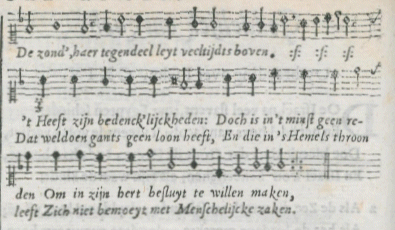 De zond', haer tegendeel leyt veeltijdts boven. :ʃ: :ʃ: :ʃ:
't Heeft zijn bedenck'lijckheden: Doch is in't minst geen re-
Dat weldoen gants geen loon heeft, En die in 's Hemels throon
den Om in zijn hert besluyt te willen maken,
leeft Zich niet bemoeyt met Menschelijcke zaken.